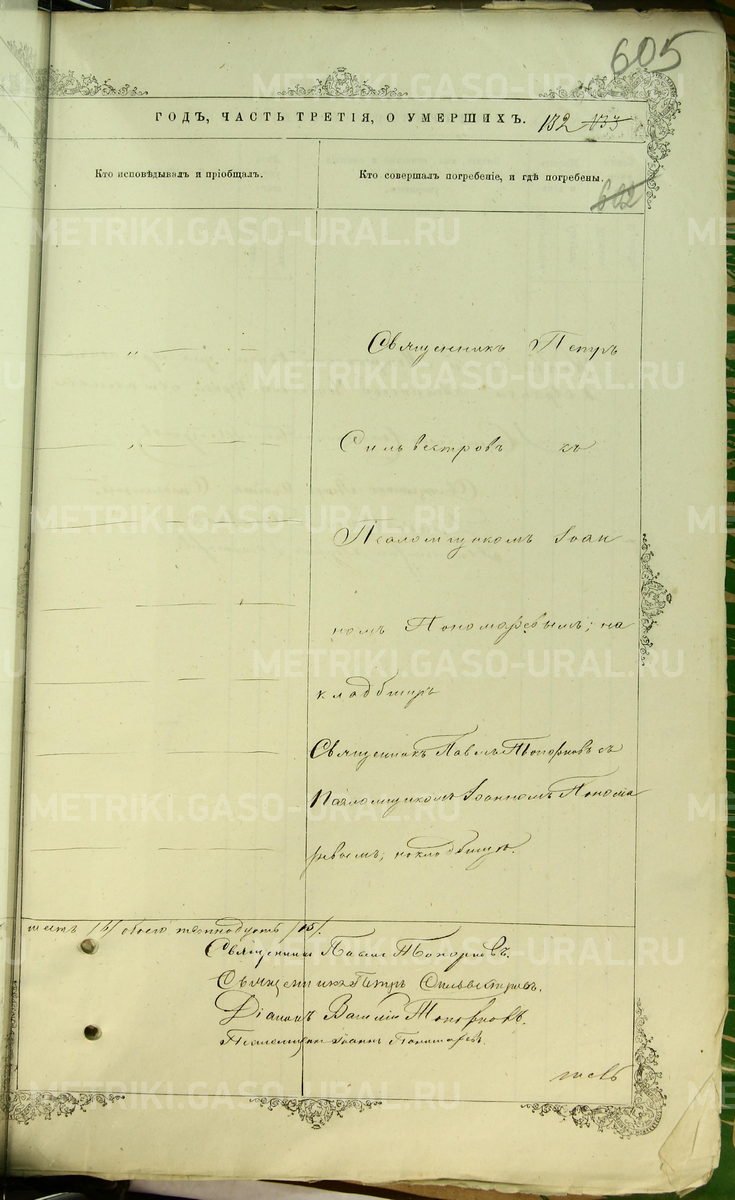 605
ГОДЪ, ЧАСТЬ ТРЕТІЯ, О УМЕРШИХЪ. 132 133
Кто исповѣдывалъ и пріобщалъ.
Кто совершалъ погребеніе, и гдѣ погребены.
602
Священникъ Петръ
Сильвестровъ съ
Псаломщикомъ Іоан
номъ Пономаревымъ; на
кладбищѣ
Священникъ Павелъ Топорковъ съ
Псаломщикомъ Іоанномъ Понома
ревымъ; на кладбищѣ.
шесть /6/ обоего пятнадцать /15/.
Священникъ Павелъ Топорковъ.
Священникъ Петръ Сильвестровъ.
Діаконъ Василій Топорковъ.
Псаломщикъ Іоаннъ Пономаревъ.
METRIKI.GASO-URAL.RU